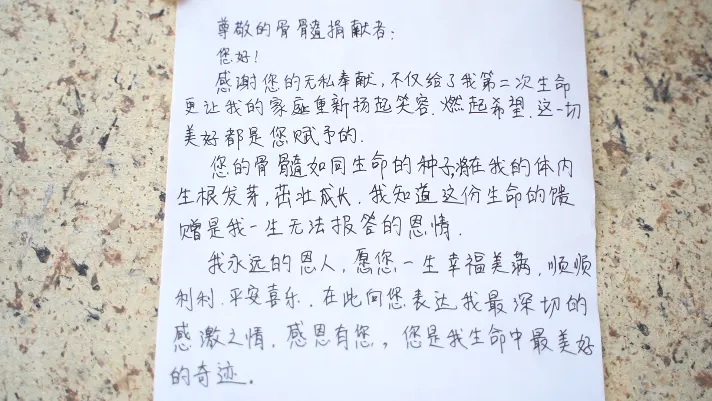 尊敬的骨髓捐献者：
您好！
感谢您的无私奉献，不仅给了我第二次生命
更让我的家庭重新扬起笑容．燃起希望．这一切
美好都是您赋予的．
您的骨髓如同生命的种子将在我的体内
生根发芽，茁壮成长．我知道这份生命的馈
赠是我一生无法报答的恩情．
我永远的恩人，愿您一生幸福美满，顺顺
利利．平安喜乐．在此向您表达我最深切的
感激之情．感恩有您，您是我生命中最美好
的奇迹．